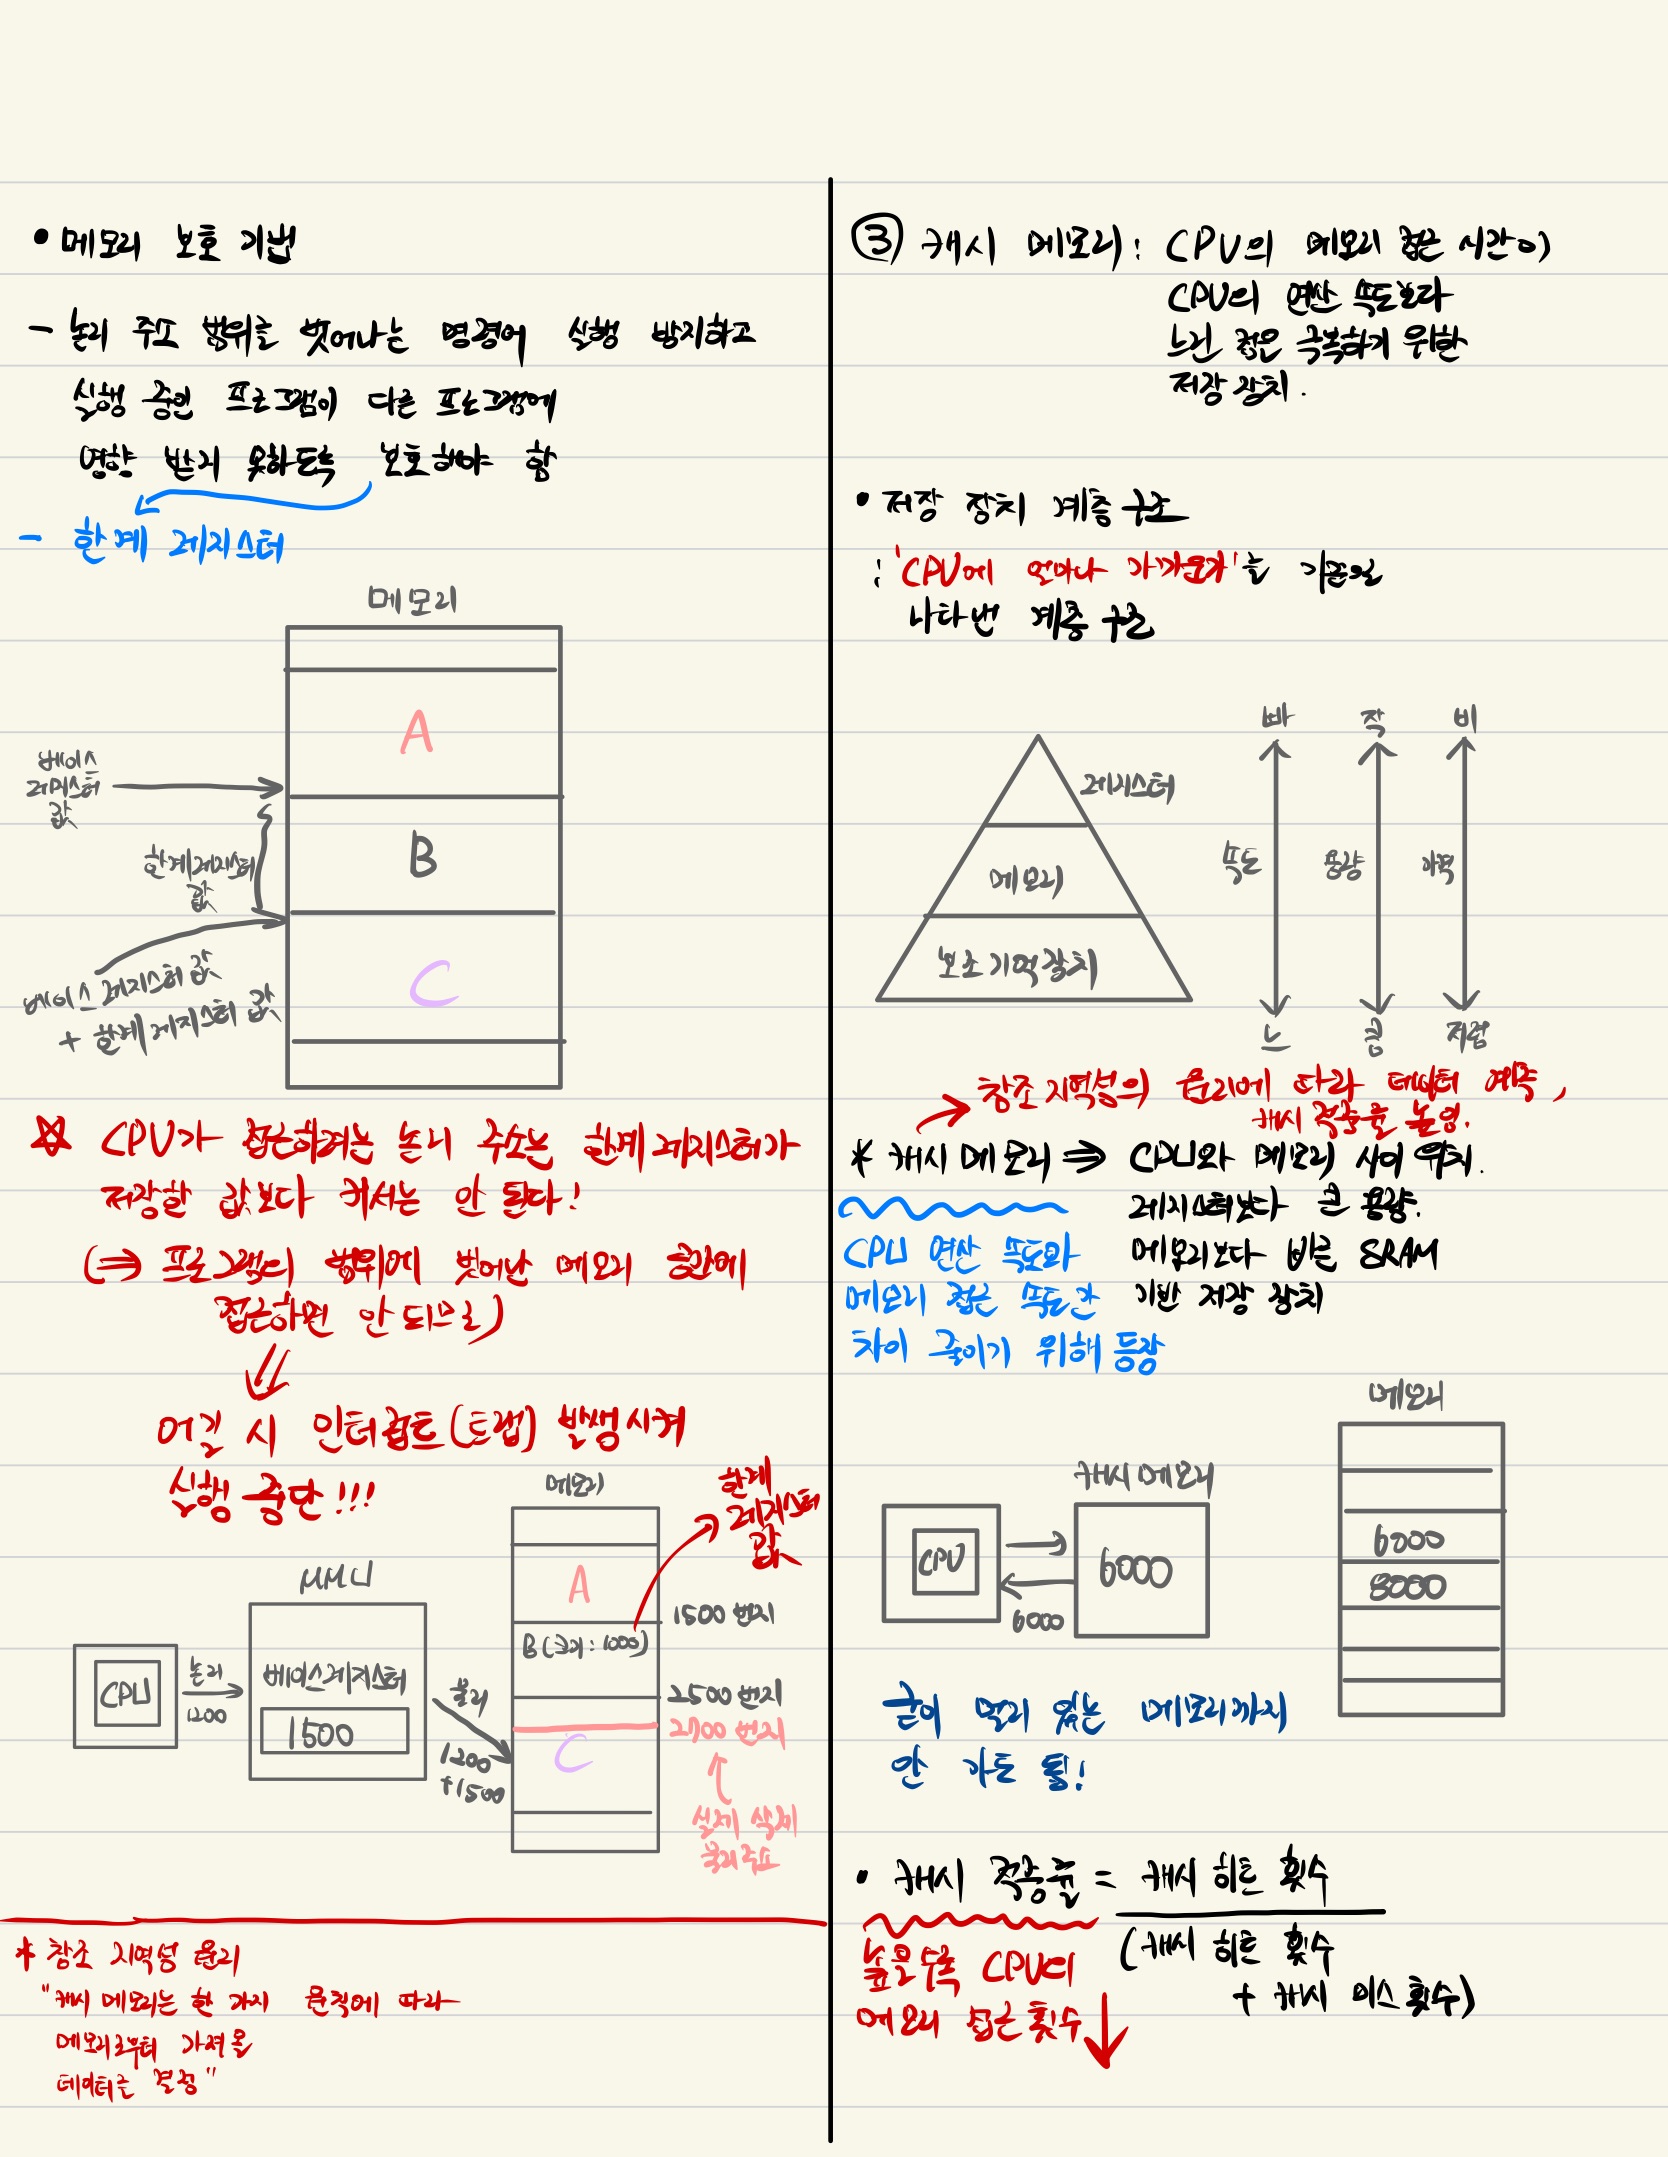 • 메모리 보호 기법
- 논리 주소 범위를 벗어나는 명령어 실행 방지하고
실행 중인 프로그램이 다른 프로그램에
영향 받지 못하도록 보호해야 함
- 한계 레지스터
메모리
A
베이스
레지스터
값
B
한계 레지스터
값
C
베이스 레지스터 값
+ 한계 레지스터 값
☆ CPU가 접근하려는 논리 주소는 한계 레지스터가
저장한 값보다 커서는 안 된다!
(⇒ 프로그램의 범위에 벗어난 메모리 공간에
접근하면 안 되므로)
⇓
어길 시 인터럽트(트랩) 발생시켜
실행 중단!!!
메모리
한계
레지스터
값
MMU
A
1500 번지
B (크기 : 1000)
CPU
논리
1200
베이스 레지스터
1500
물리
1200
+1500
2500 번지
2700 번지
C
실제 삭제
물리주소
* 참조 지역성 원리
"캐시 메모리는 한 가지 원칙에 따라
메모리로부터 가져올
데이터를 결정"
③ 캐시 메모리 : CPU의 메모리 접근 시간이
CPU의 연산 속도보다
느린 점은 극복하기 위한
저장 장치.
• 저장 장치 계층 구조
: 'CPU에 얼마나 가까운가'를 기준으로
나타낸 계층 구조
빠 작 비
레지스터
메모리
보조기억장치
속도 용량 가격
느 큼 저렴
참조 지역성의 원리에 따라 데이터 예측,
캐시 적중률 높임.
* 캐시 메모리 ⇒ CPU와 메모리 사이 위치.
레지스터보다 큰 용량.
메모리보다 빠른 SRAM
기반 저장 장치
CPU 연산 속도와
메모리 접근 속도간
차이 줄이기 위해 등장
메모리
캐시 메모리
CPU
6000
6000
6000
8000
굳이 멀리 있는 메모리까지
안 가도 됨!
• 캐시 적중률 = 캐시 히트 횟수
(캐시 히트 횟수
+ 캐시 미스 횟수)
높을수록 CPU의
메모리 접근 횟수 ↓